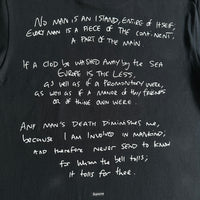 No MAN is AN ISLAND, ENTIRE of ITSELF.
EVERY MAN is A PIECE OF THE CONTINENT,
A PART OF THE MAIN
IF A CLOD be WASHED AWAY by the SEA
EUROPE IS THE LESS,
AS WELL AS IF A PROMONTORY WERE,
AS WELL AS IF A MANOR OF thy FRIENDS
OR OF THINE OWN WERE.
ANY MAN'S DEATH DIMINISHES ME,
because I AM INVOLVED IN MANKIND;
AND therefore NEVER SEND TO KNOW
for Whom the bell tolls;
it tolls for thee.